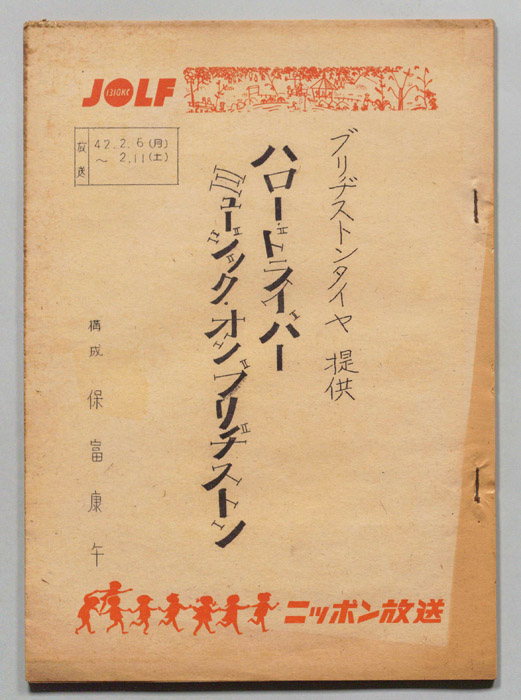 JOLF
1310KC
放送
42.2.6(月)
～2.11(土)
ブリヂストンタイヤ 提供
ハロー・ドライバー
ミュージック・オン・ブリヂストン
構成 保富康午
ニッポン放送